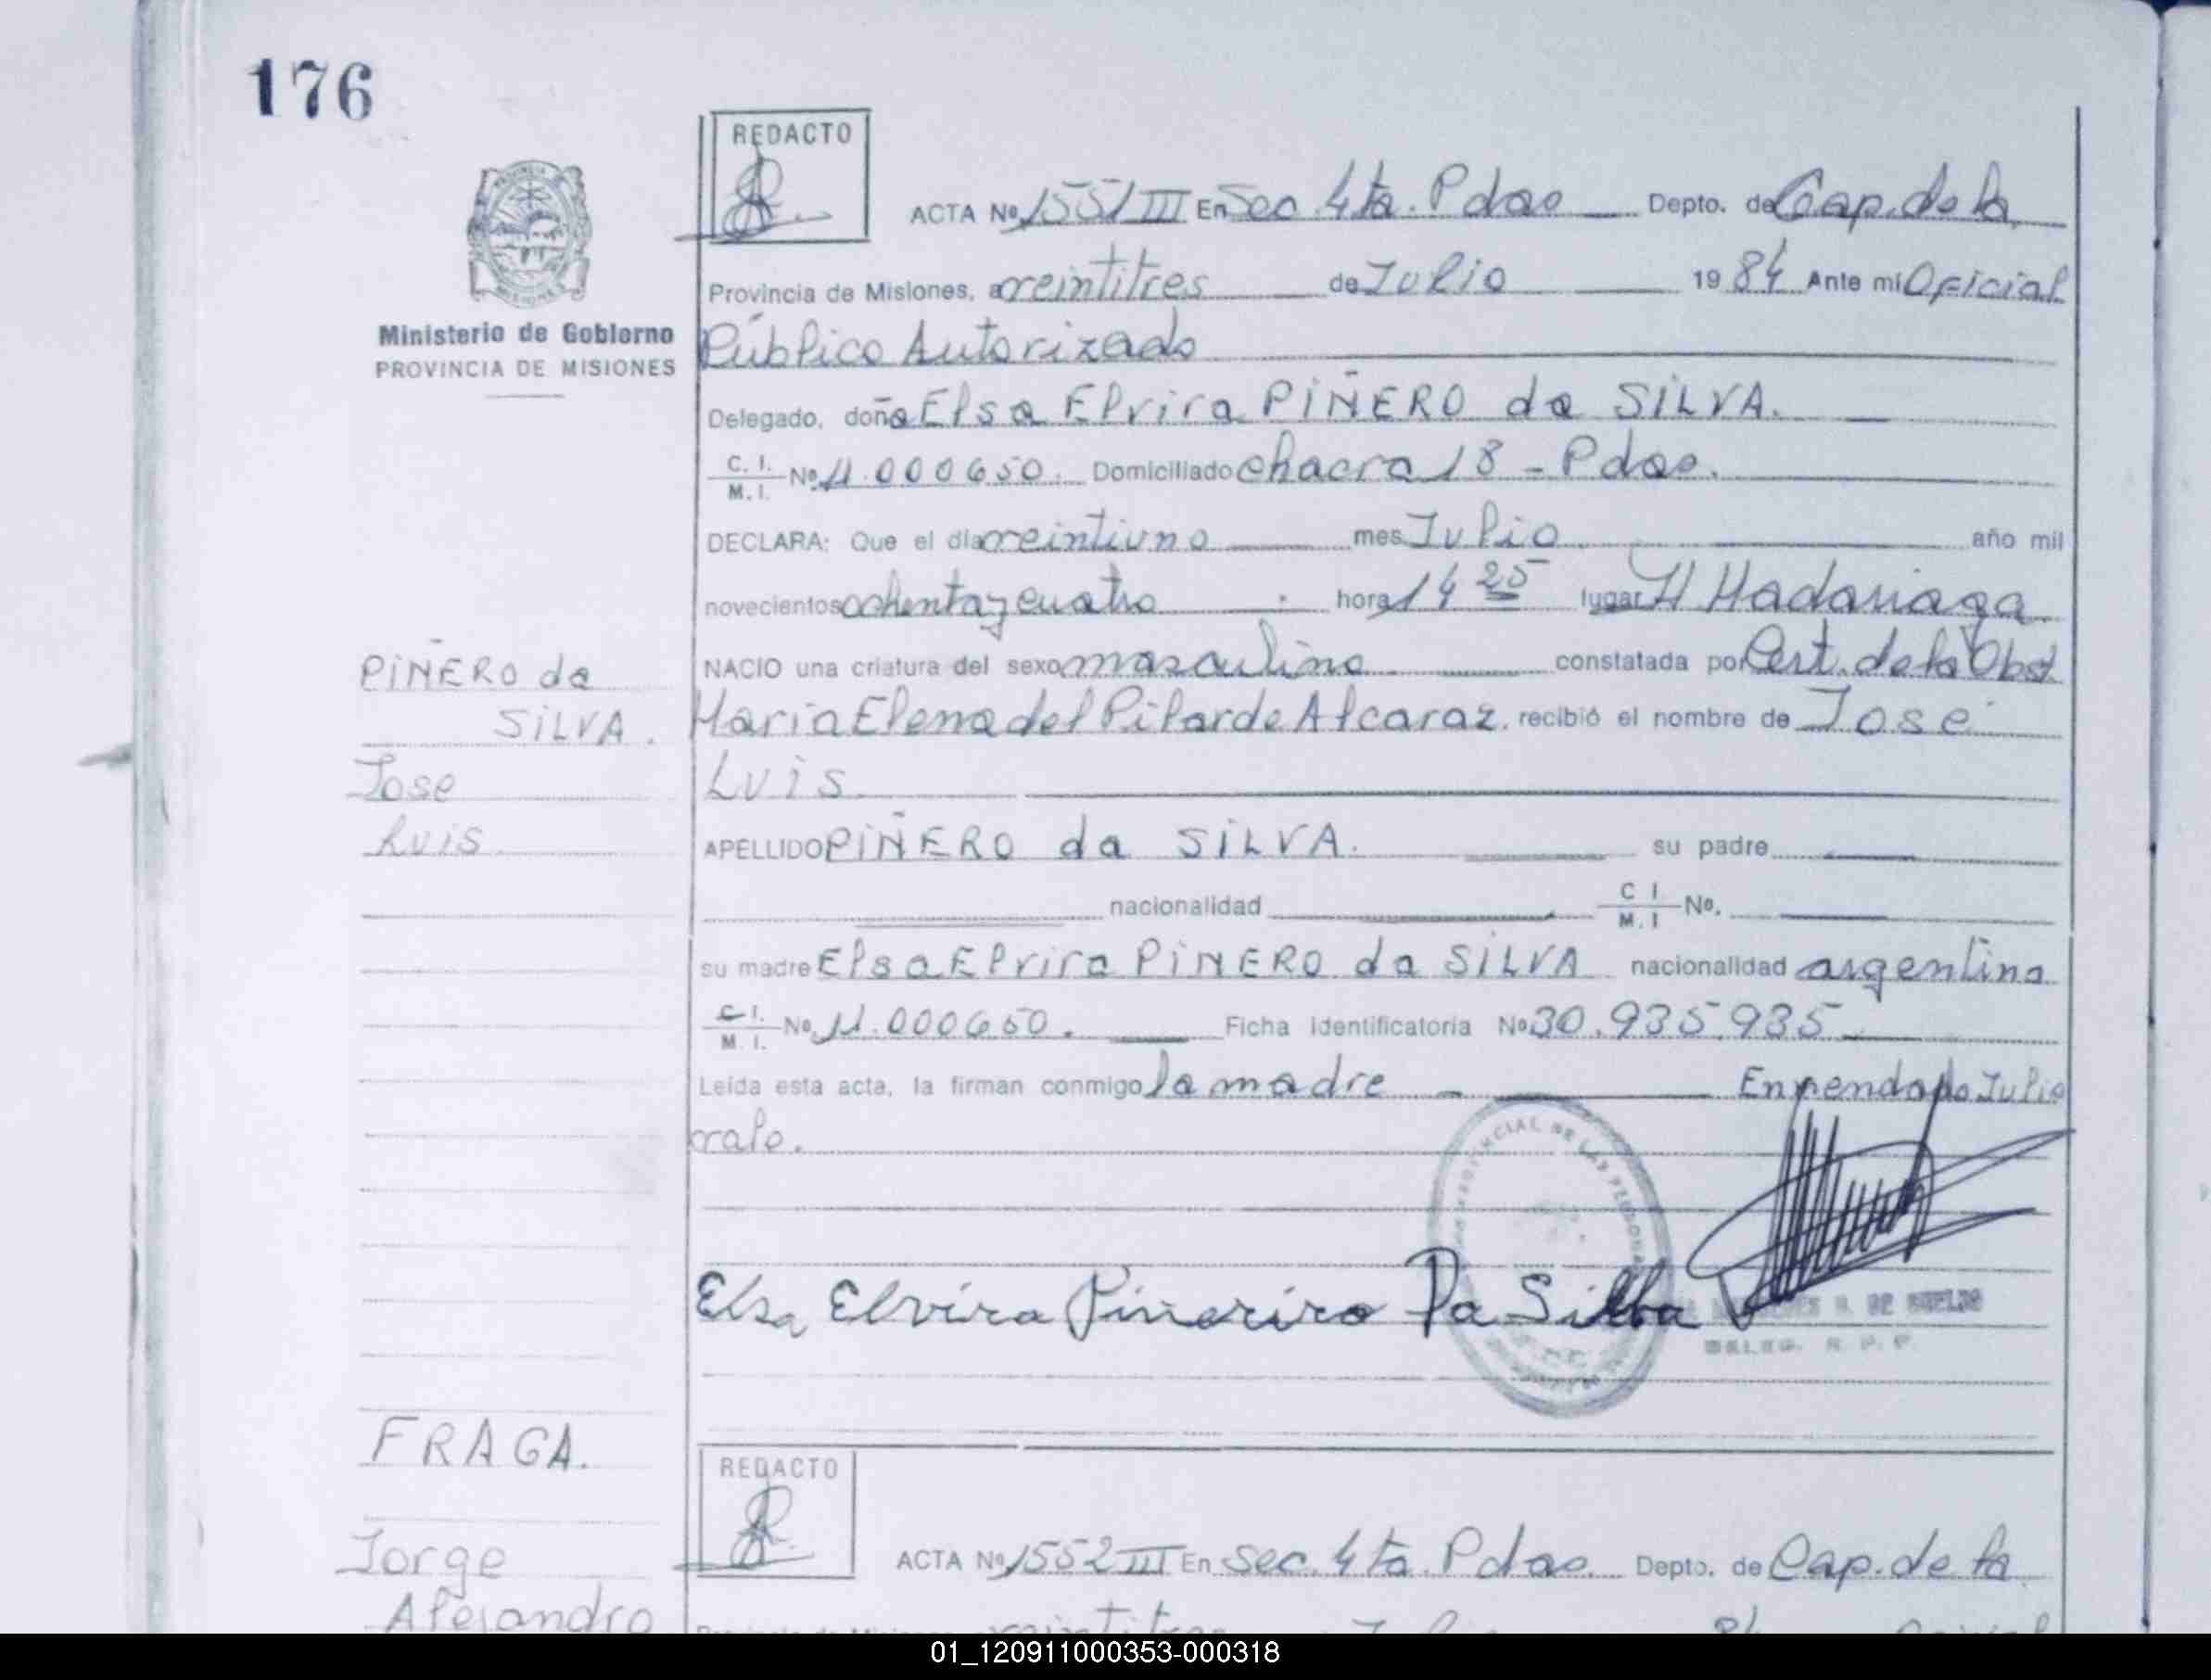 176
REDACTO
ACTA Nº 1551 III En Sec. 4ta. Pdas Depto. de Cap. de la
Provincia de Misiones, a veintitres de Julio 1984 Ante mi Oficial
Ministerio de Gobierno
PROVINCIA DE MISIONES
Público Autorizado
Delegado, doña Elsa Elvira PIÑERO da SILVA.
C. I. M. I. Nº 11.000650. Domiciliado chacra 18 - Pdas.
DECLARA: Que el día veintiuno mes Julio año mil
novecientos ochenta y cuatro hora 14 25 lugar H Madariaga
PIÑERO da
SILVA.
Jose
Luis
NACIO una criatura del sexo masculino constatada por Cert. de la Obst
Maria Elena del Pilar de Alcaraz. recibió el nombre de José
Luis
APELLIDO PIÑERO da SILVA. su padre
nacionalidad C I M. I Nº.
su madre Elsa Elvira PIÑERO da SILVA nacionalidad argentina
C I. M. I. Nº 11.000650. Ficha Identificatoria Nº 30.935.935
Leída esta acta, la firman conmigo la madre Enmendado Julio
vale.
PROVINCIAL DE LAS PERSONAS
Elsa Elvira Piñeriro Da Silba
DE
DELEG. R. P. P.
FRAGA.
Jorge
Alejandro
REDACTO
ACTA Nº 1552 III En Sec. 4ta. Pdas. Depto. de Cap. de la
01_120911000353-000318